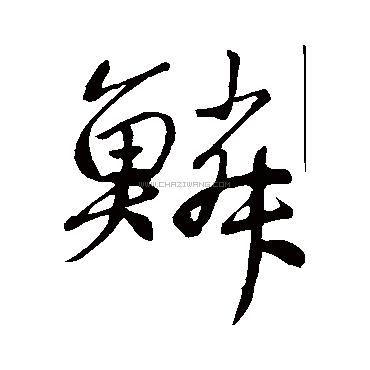 鱗
WWW.CHAZIWANG.COM